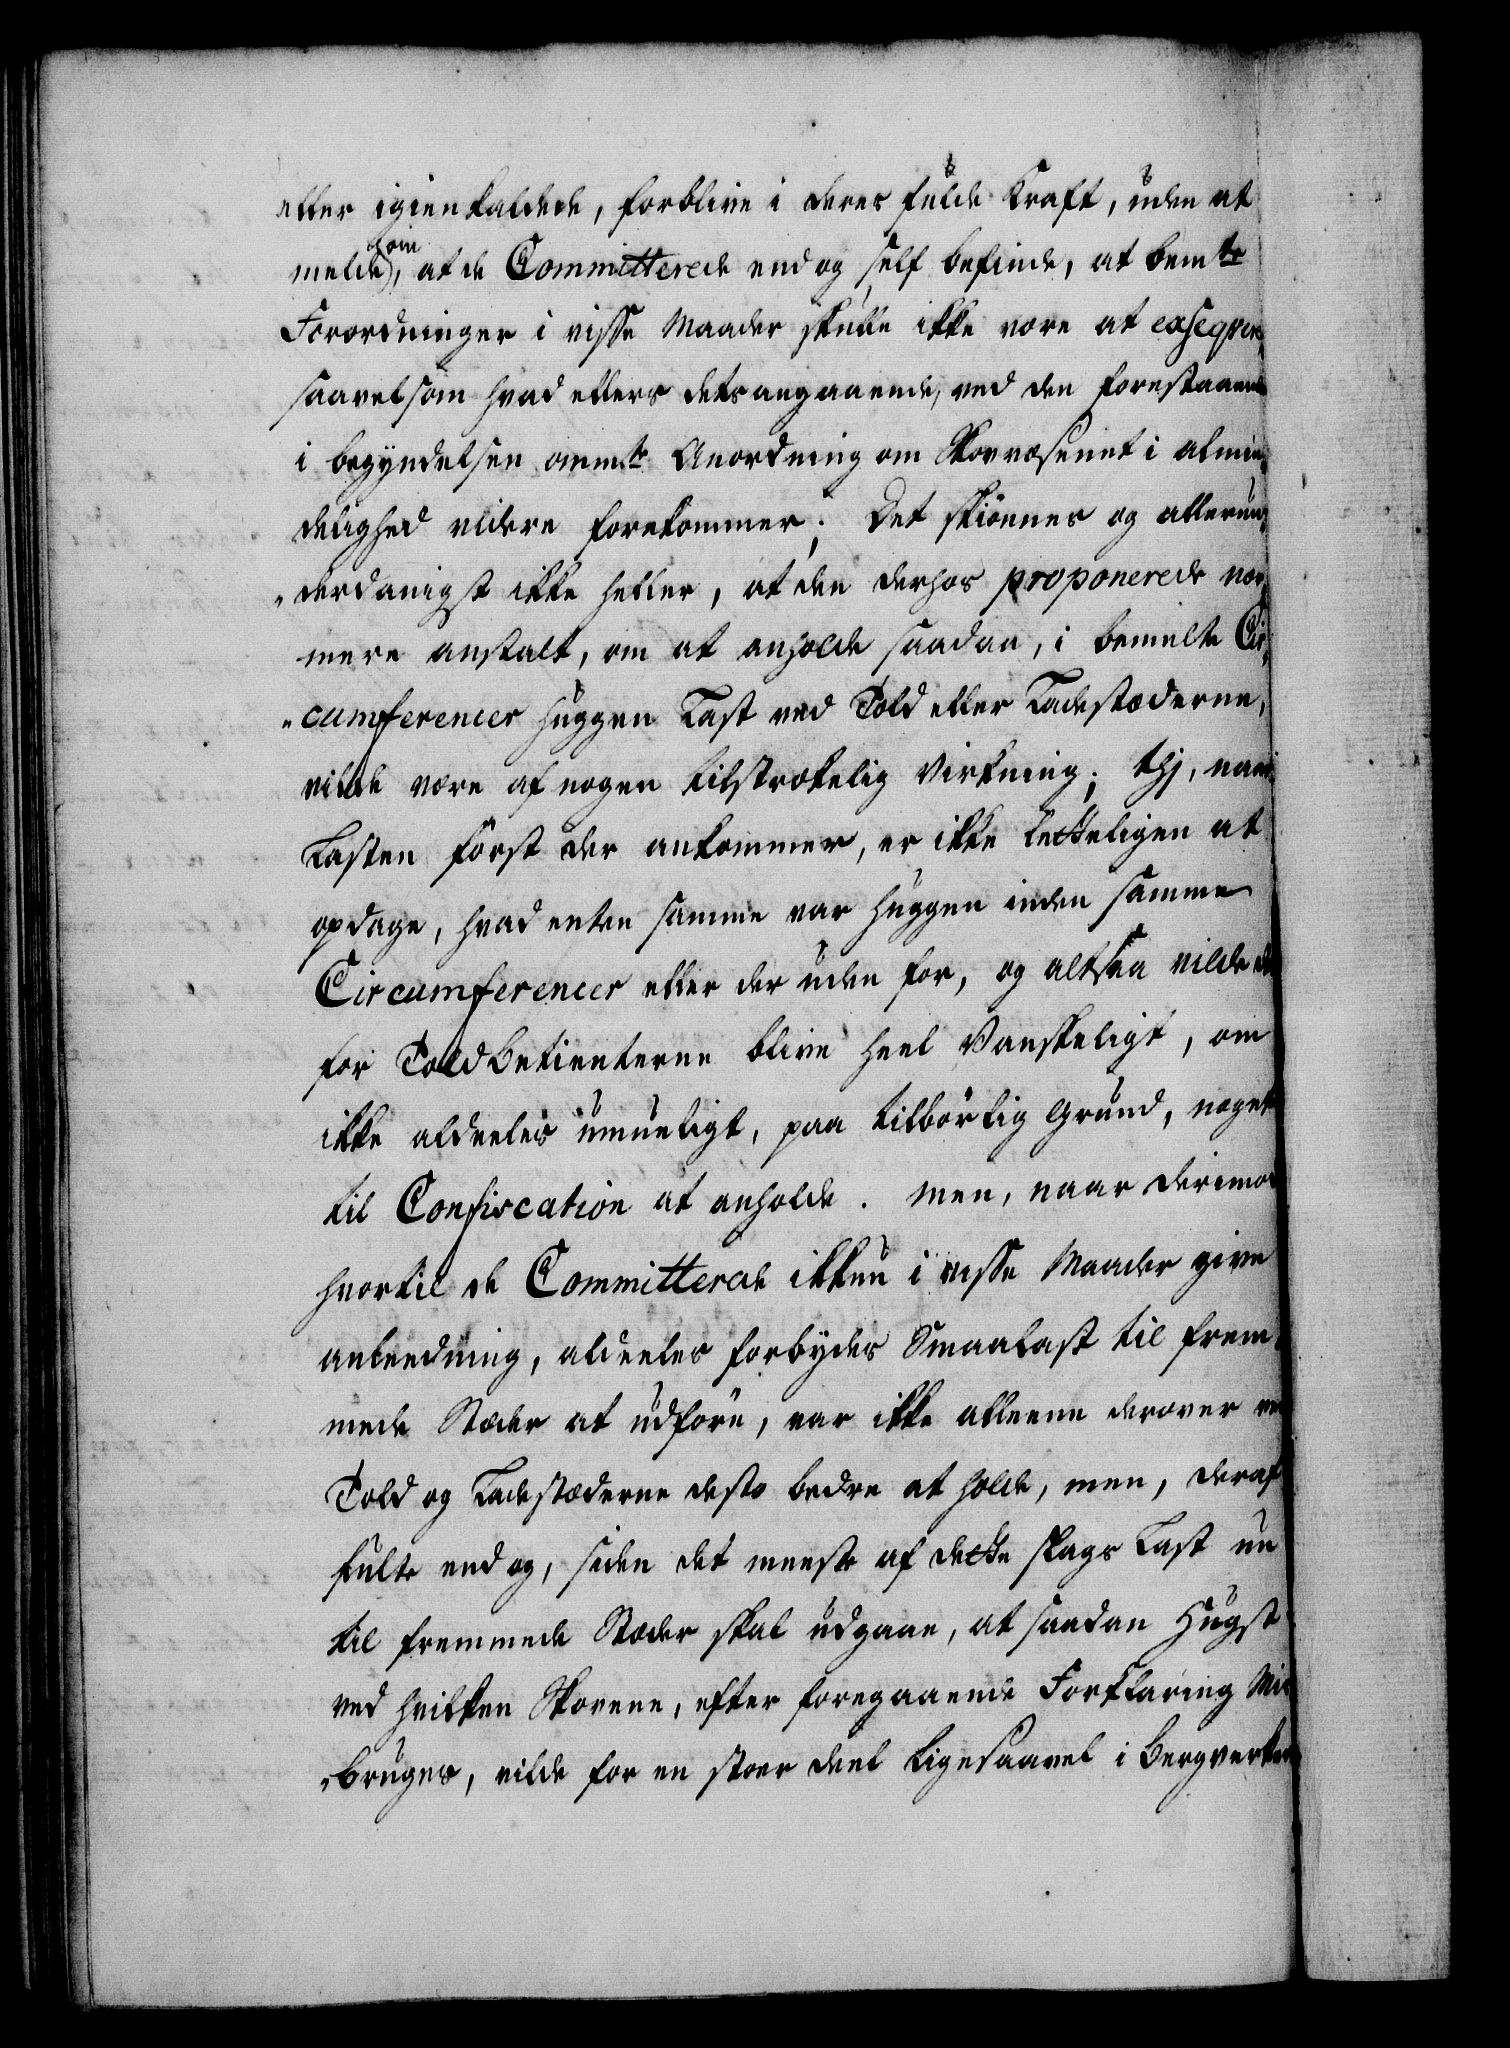 eller igienkaldede, forblive i deres fulde Kraft, uden at
melde om, at de Committerede end og self befinde, at bemte
Forordninger i visse Maader skulle ikke være at exseqvere,
saavelsom hvad ellers detsangaaende, ved den forestaaende
i begyndelsen ommte Anordning om Skovvæsenet i almin,
delighed videre forekommer; Det skiønnes og allerun,
„derdanigst ikke heller, at den derhos proponerede nær,
mere anstalt, om at anholde saadan, i bemelte Cir,
„cumferencer huggen Last ved Told eller Ladestæderne,
vilde være af nogen tilstrækelig Virkning; thj, naar
Lasten först der ankommer, er ikke letteligen at
opdage, hvad enten samme var huggen inden samme
Circumferencer eller der uden for, og altsaa vilde det
for Toldbetienterne blive heel Vanskeligt, om
ikke aldeeles umueligt, paa tilbörlig Grund, noget
til Confiscation at anholde. men, naar derimod
hvortil de Committerede ikkun i visse Maader give
anleedning, aldeeles forbydes Smaalast til frem,
mede Stæder at udföre, var ikke alleene derover ved
Told og Ladestæderne desto bedre at holde, men, deraf
fulte end og, siden det meeste af dette slags Last nu
til fremmede Stæder skal udgaae, at saadan Hugst
ved hvilken Skovene, efter foregaaende Forklaring Mis
„bruges, vilde for en stoer deel ligesaavel i Bergverkers